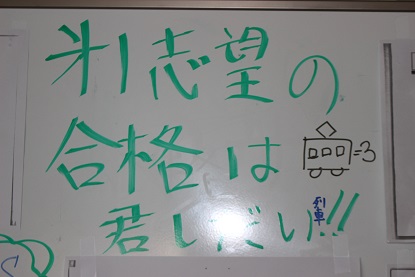 第1志望の
合格は =3
君しだい!!
列車